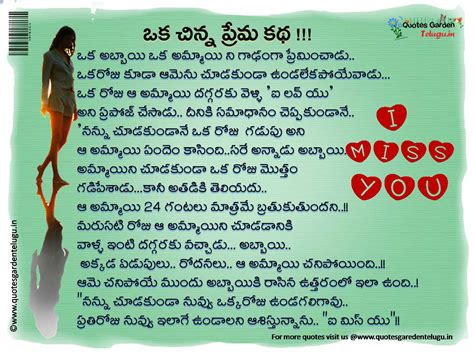 Quotes Garden
Telugu.in
ఒక చిన్న ప్రేమ కథ !!!
ఒక అబ్బాయి ఒక అమ్మాయి ని గాఢంగా ప్రేమించాడు..
ఒకరోజు కూడా ఆమెను చూడకుండా ఉండలేకపోయేవాడు...
ఒక రోజు ఆ అమ్మాయి దగ్గరకు వెళ్ళి 'ఐ లవ్ యు'
అని ప్రపోజ్ చేసాడు.. దీనికి సమాధానం చెప్పకుండానే..
'నన్ను చూడకుండానే ఒక రోజు గడుపు అని
ఆ అమ్మాయి పందెం కాసింది..సరే అన్నాడు అబ్బాయి.
అమ్మాయిని చూడకుండా ఒక రోజు మొత్తం
గడిపేశాడు...కానీ అతడికి తెలియదు..
ఆ అమ్మాయి 24 గంటలు మాత్రమే బ్రతుకుతుందని..!!
మరుసటి రోజు ఆ అమ్మాయిని చూడడానికి
వాళ్ళ ఇంటి దగ్గరకు వచ్చాడు... అబ్బాయి..
అక్కడ ఏడుపులు.. రోదనలు.. ఆ అమ్మాయి చనిపోయింది..!
ఆమె చనిపోయే ముందు అబ్బాయికి రాసిన ఉత్తరంలో ఇలా ఉంది..!
"నన్ను చూడకుండా నువ్వు ఒక్కరోజు ఉండగలిగావు..
ప్రతిరోజు నువ్వు ఇలాగే ఉండాలని ఆశిస్తున్నాను.. "ఐ మిస్ యు"!
I
MISS
YOU
©www.quotesgardentelugu.in
For more quotes visit us @www.quotesgardentelugu.in